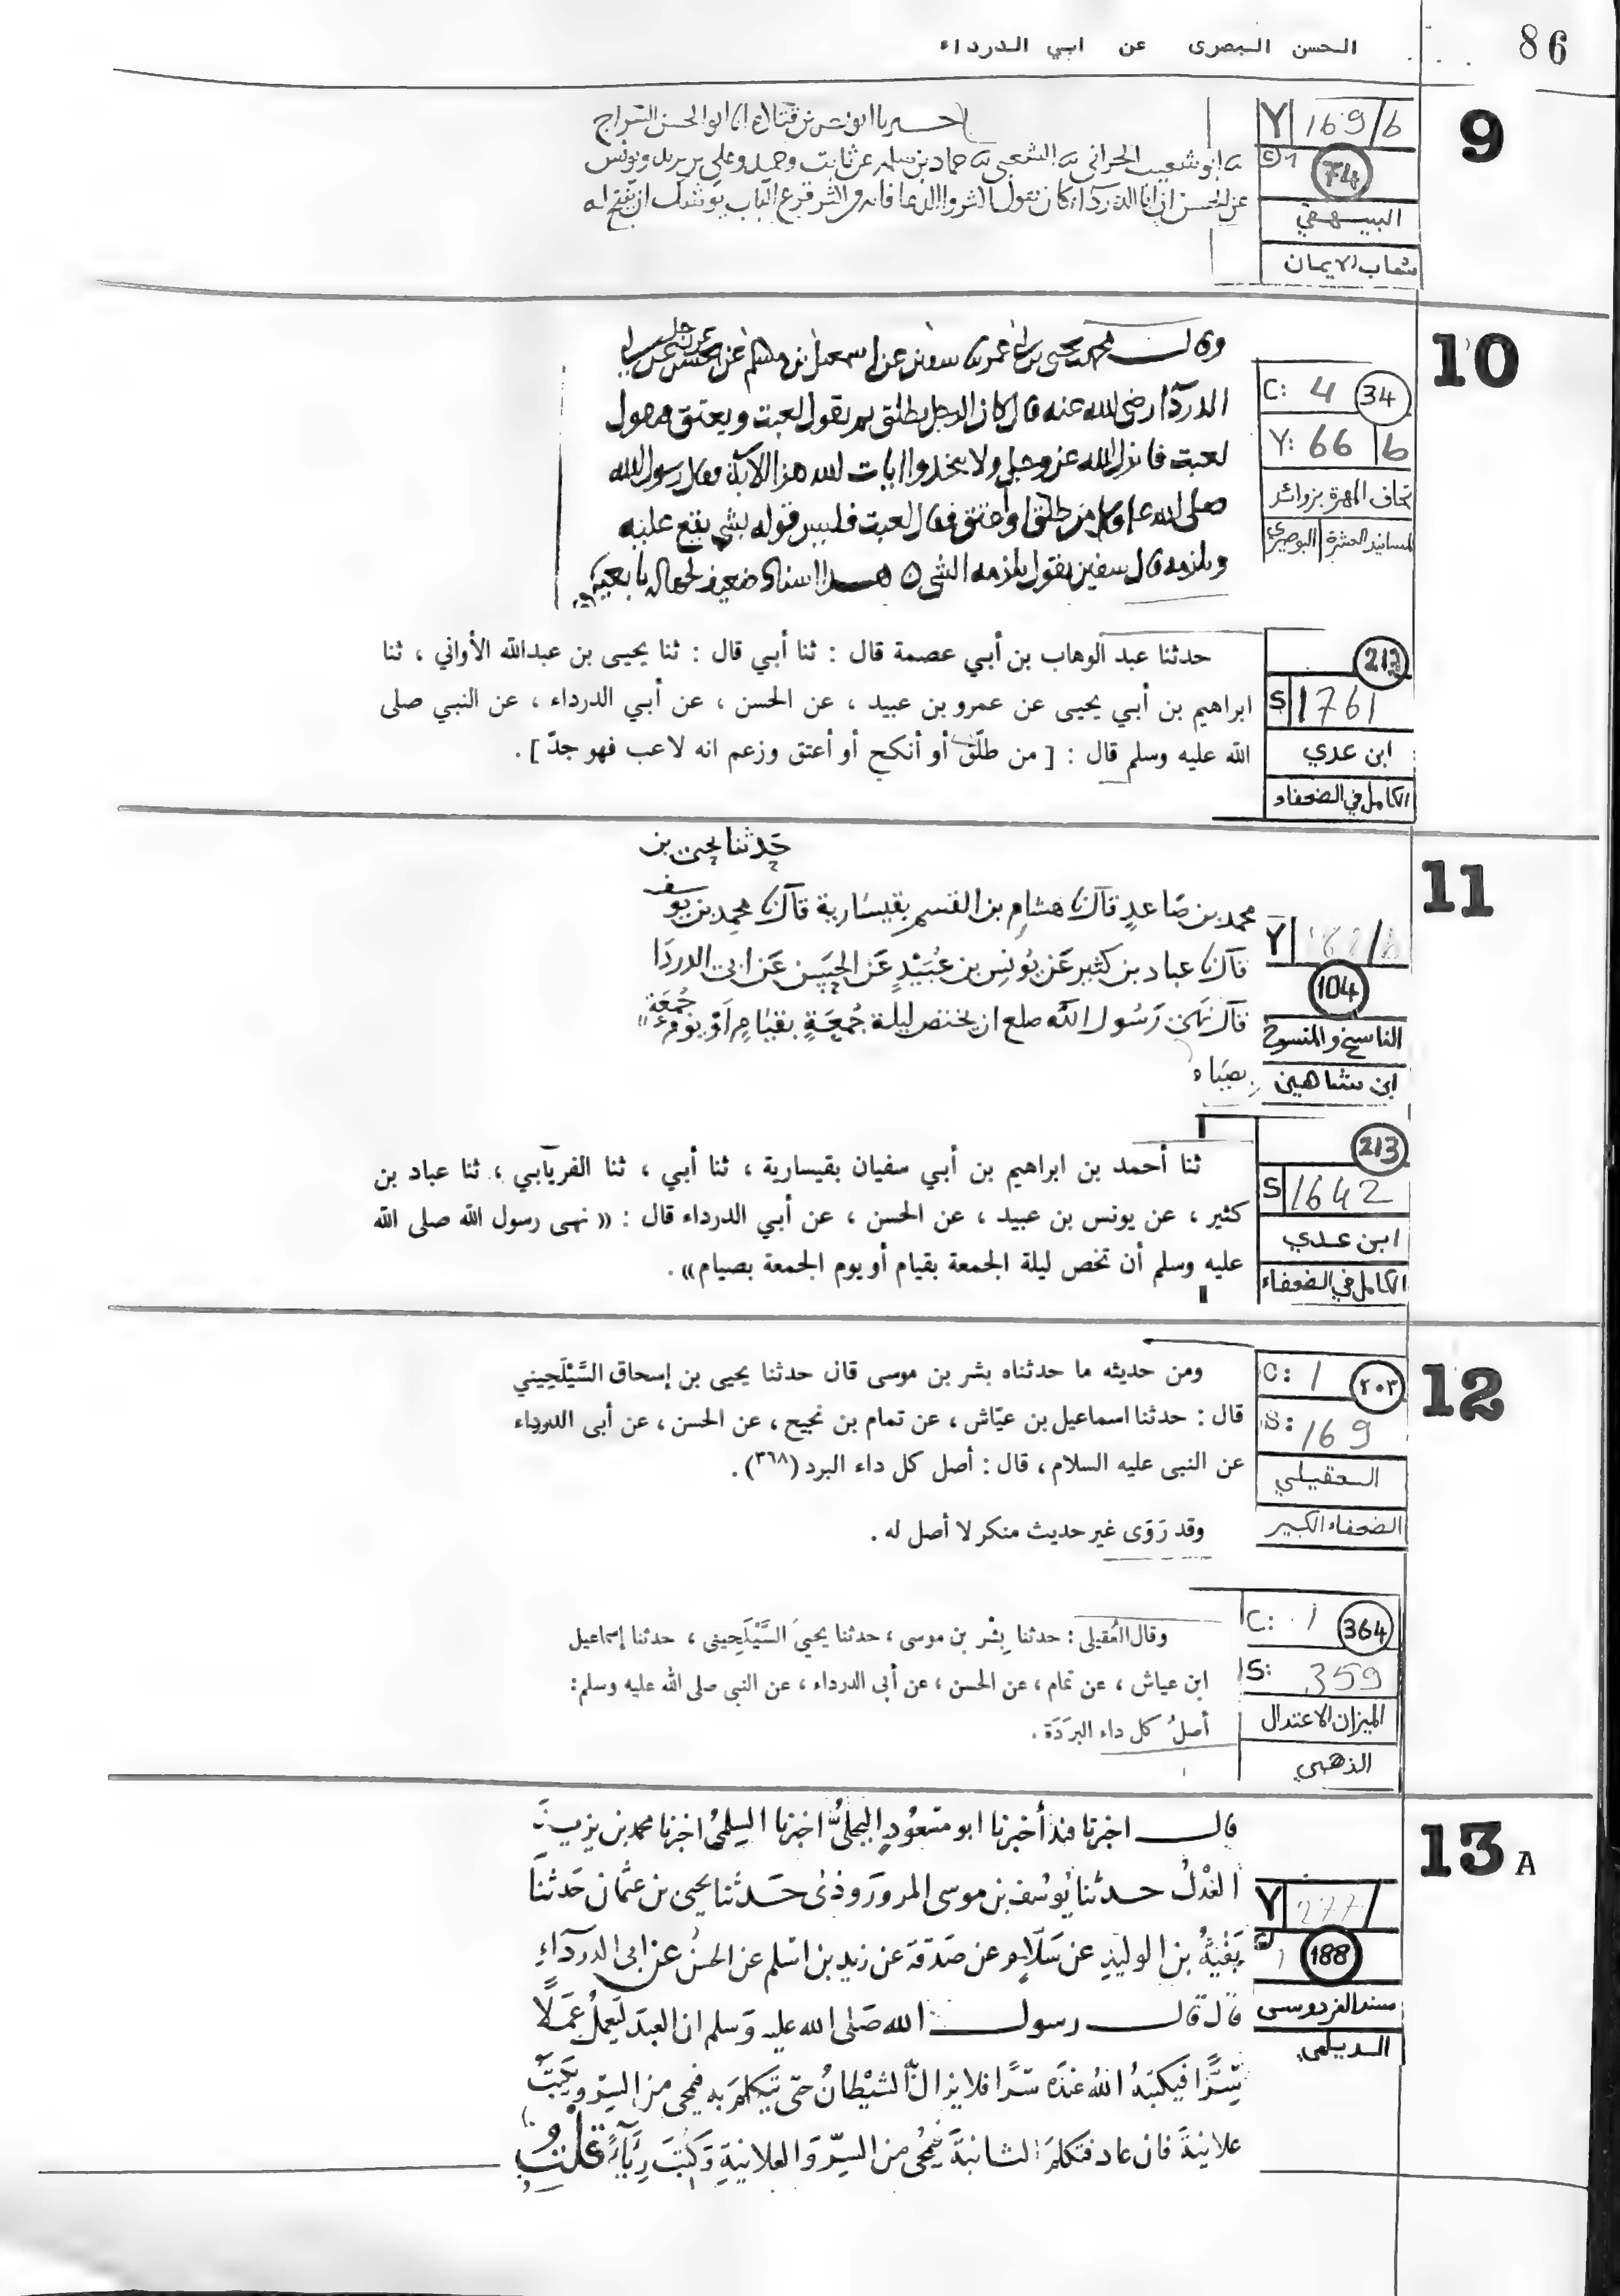 86
الحسن البصرى عن ابي الدرداء
9
Y 169/b
74
البيهقي
شعاب الايمان
ابو الحسن السراج
ابو شعيب الحراني حماد بن سلمه عن ثابت وحميد وعلي بن يزيد ويونس
عن الحسن ان ابا الدرداء كان يقول قرع الباب يوشك ان يفتح له
10
C: 4 34
Y: 66 b
تحاف المهرة بزوائد
المسانيد العشرة البوصيري
وقال محمد بن يحيى بن ابي عمر سفين عن اسمعيل بن مسلم عن الحسن عن
الدرداء رضى الله عنه قال كان الرجل يطلق ثم يقول لعبت ويعتق
لعبت فانزل الله عز وجل ولا تتخذوا ايات الله هزوا الاية فقال رسول الله
صلى الله عليه وسلم من طلق او اعتق فقال لعبت فليس قوله بشي يقع عليه
ويلزمه قال سفين يقول يلزمه الشي هذا اسناد ضعيف
حدثنا عبد الوهاب بن أبي عصمة قال : ثنا أبي قال : ثنا يحيى بن عبدالله الأواني ، ثنا
ابراهيم بن أبي يحيى عن عمرو بن عبيد ، عن الحسن ، عن أبي الدرداء ، عن النبي صلى
الله عليه وسلم قال : [ من طلّق أو أنكح أو أعتق وزعم انه لاعب فهو جدّ ] .
212
S 1761
ابن عدي
الكامل في الضعفاء
11
حدثنا يحيى بن
محمد بن صاعد قال هشام بن القسم بقيسارية قال محمد بن يوسف
قال عباد بن كثير عن يونس بن عبيد عن الحسن عن ابى الدردا
قال نهى رسول الله صلع ان يختص ليلة جمعة بقيام او يوم جمعة
بصيام
Y
104
الناسخ والمنسوخ
ابن شاهين
ثنا أحمد بن ابراهيم بن أبي سفيان بقيسارية ، ثنا أبي ، ثنا الفريابي ، ثنا عباد بن
كثير ، عن يونس بن عبيد ، عن الحسن ، عن أبي الدرداء قال : « نهى رسول الله صلى الله
عليه وسلم أن تخص ليلة الجمعة بقيام أو يوم الجمعة بصيام» .
213
S 1642
ابن عدي
الكامل في الضعفاء
12
C: 1 ٢٠٣
S: 169
العقيلي
الضعفاء الكبير
ومن حديثه ما حدثناه بشر بن موسى قال حدثنا يحيى بن إسحاق السَّيْلَحِيني
قال : حدثنا اسماعيل بن عيّاش ، عن تمام بن نجيح ، عن الحسن ، عن أبى الدرداء
عن النبى عليه السلام ، قال : أصل كل داء البرد (٣٦٨) .
وقد رَوَى غير حديث منكر لا أصل له .
C: 1 364
S: 359
الميزان الاعتدال
الذهبي
وقال العُقيلى : حدثنا بِشْر بن موسى ، حدثنا يحيىَ السَّيْلَحِينى ، حدثنا إسماعيل
ابن عياش ، عن تمام ، عن الحسن ، عن أبى الدرداء ، عن النبى صلى الله عليه وسلم :
أصلُ كل داء البرَدَة .
13 A
Y 277/
188
مسند الفردوسى
الديلمي
قال اخبرنا اخبرنا ابو مسعود البجلي اخبرنا السلمي اخبرنا محمد بن يزيد
العدل حدثنا يوسف بن موسى المروروذى حدثنا يحيى بن عثمان حدثنا
بقية بن الوليد عن سلام عن صدقة عن زيد بن اسلم عن الحسن عن ابى الدرداء
قال قال رسول الله صلى الله عليه وسلم ان العبد ليعمل عملا
سرا فيكتبه الله عنده سرا فلا يزال الشيطان حتى يتكلم به فيمحى من السر ويكتب
علانية فان عاد فتكلم الثانية محى من السر والعلانية وكتب رياء قلت